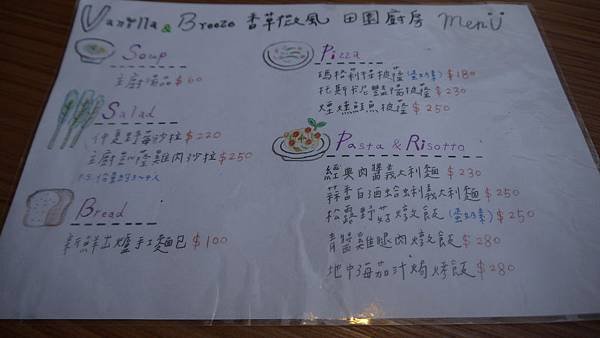 Vanilla & Breeze 香草微風 田園廚房 Menu
Soup
主廚湯品 $60
Salad
仲夏野莓沙拉 $220
主廚凱薩雞肉沙拉 $250
P.S. 份量約3~4人
Bread
新鮮出爐手工麵包 $100
Pizza
瑪格莉特披薩 (蛋奶素) $180
托斯卡尼披薩 $230
煙燻鮭魚披薩 $250
Pasta & Risotto
經典肉醬義大利麵 $230
蒜香白酒蛤蜊義大利麵 $250
松露野菇燉飯 (蛋奶素) $250
青醬雞腿肉燉飯 $280
地中海茄汁焗烤飯 $280